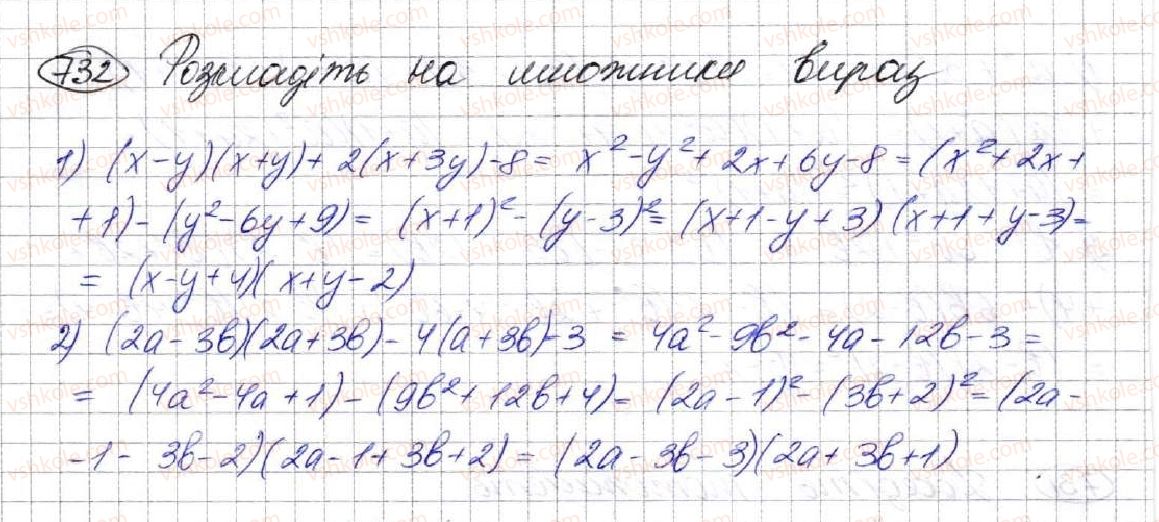 732 Розкладіть на множники вираз
1) (x-y)(x+y)+2(x+3y)-8 = x²-y²+2x+6y-8 = (x²+2x+
+1)-(y²-6y+9) = (x+1)²-(y-3)² = (x+1-y+3)(x+1+y-3) =
= (x-y+4)(x+y-2)
2) (2a-3b)(2a+3b)-4(a+3b)-3 = 4a²-9b²-4a-12b-3 =
= (4a²-4a+1)-(9b²+12b+4) = (2a-1)²-(3b+2)² = (2a-
-1-3b-2)(2a-1+3b+2) = (2a-3b-3)(2a+3b+1)